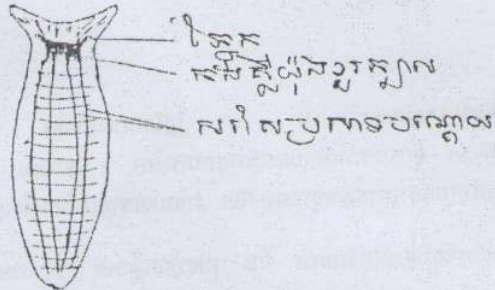 ភ្នែក
កងគ្លីយ៉ុងខួរក្បាល
សរសៃប្រសាទបណ្តោយ